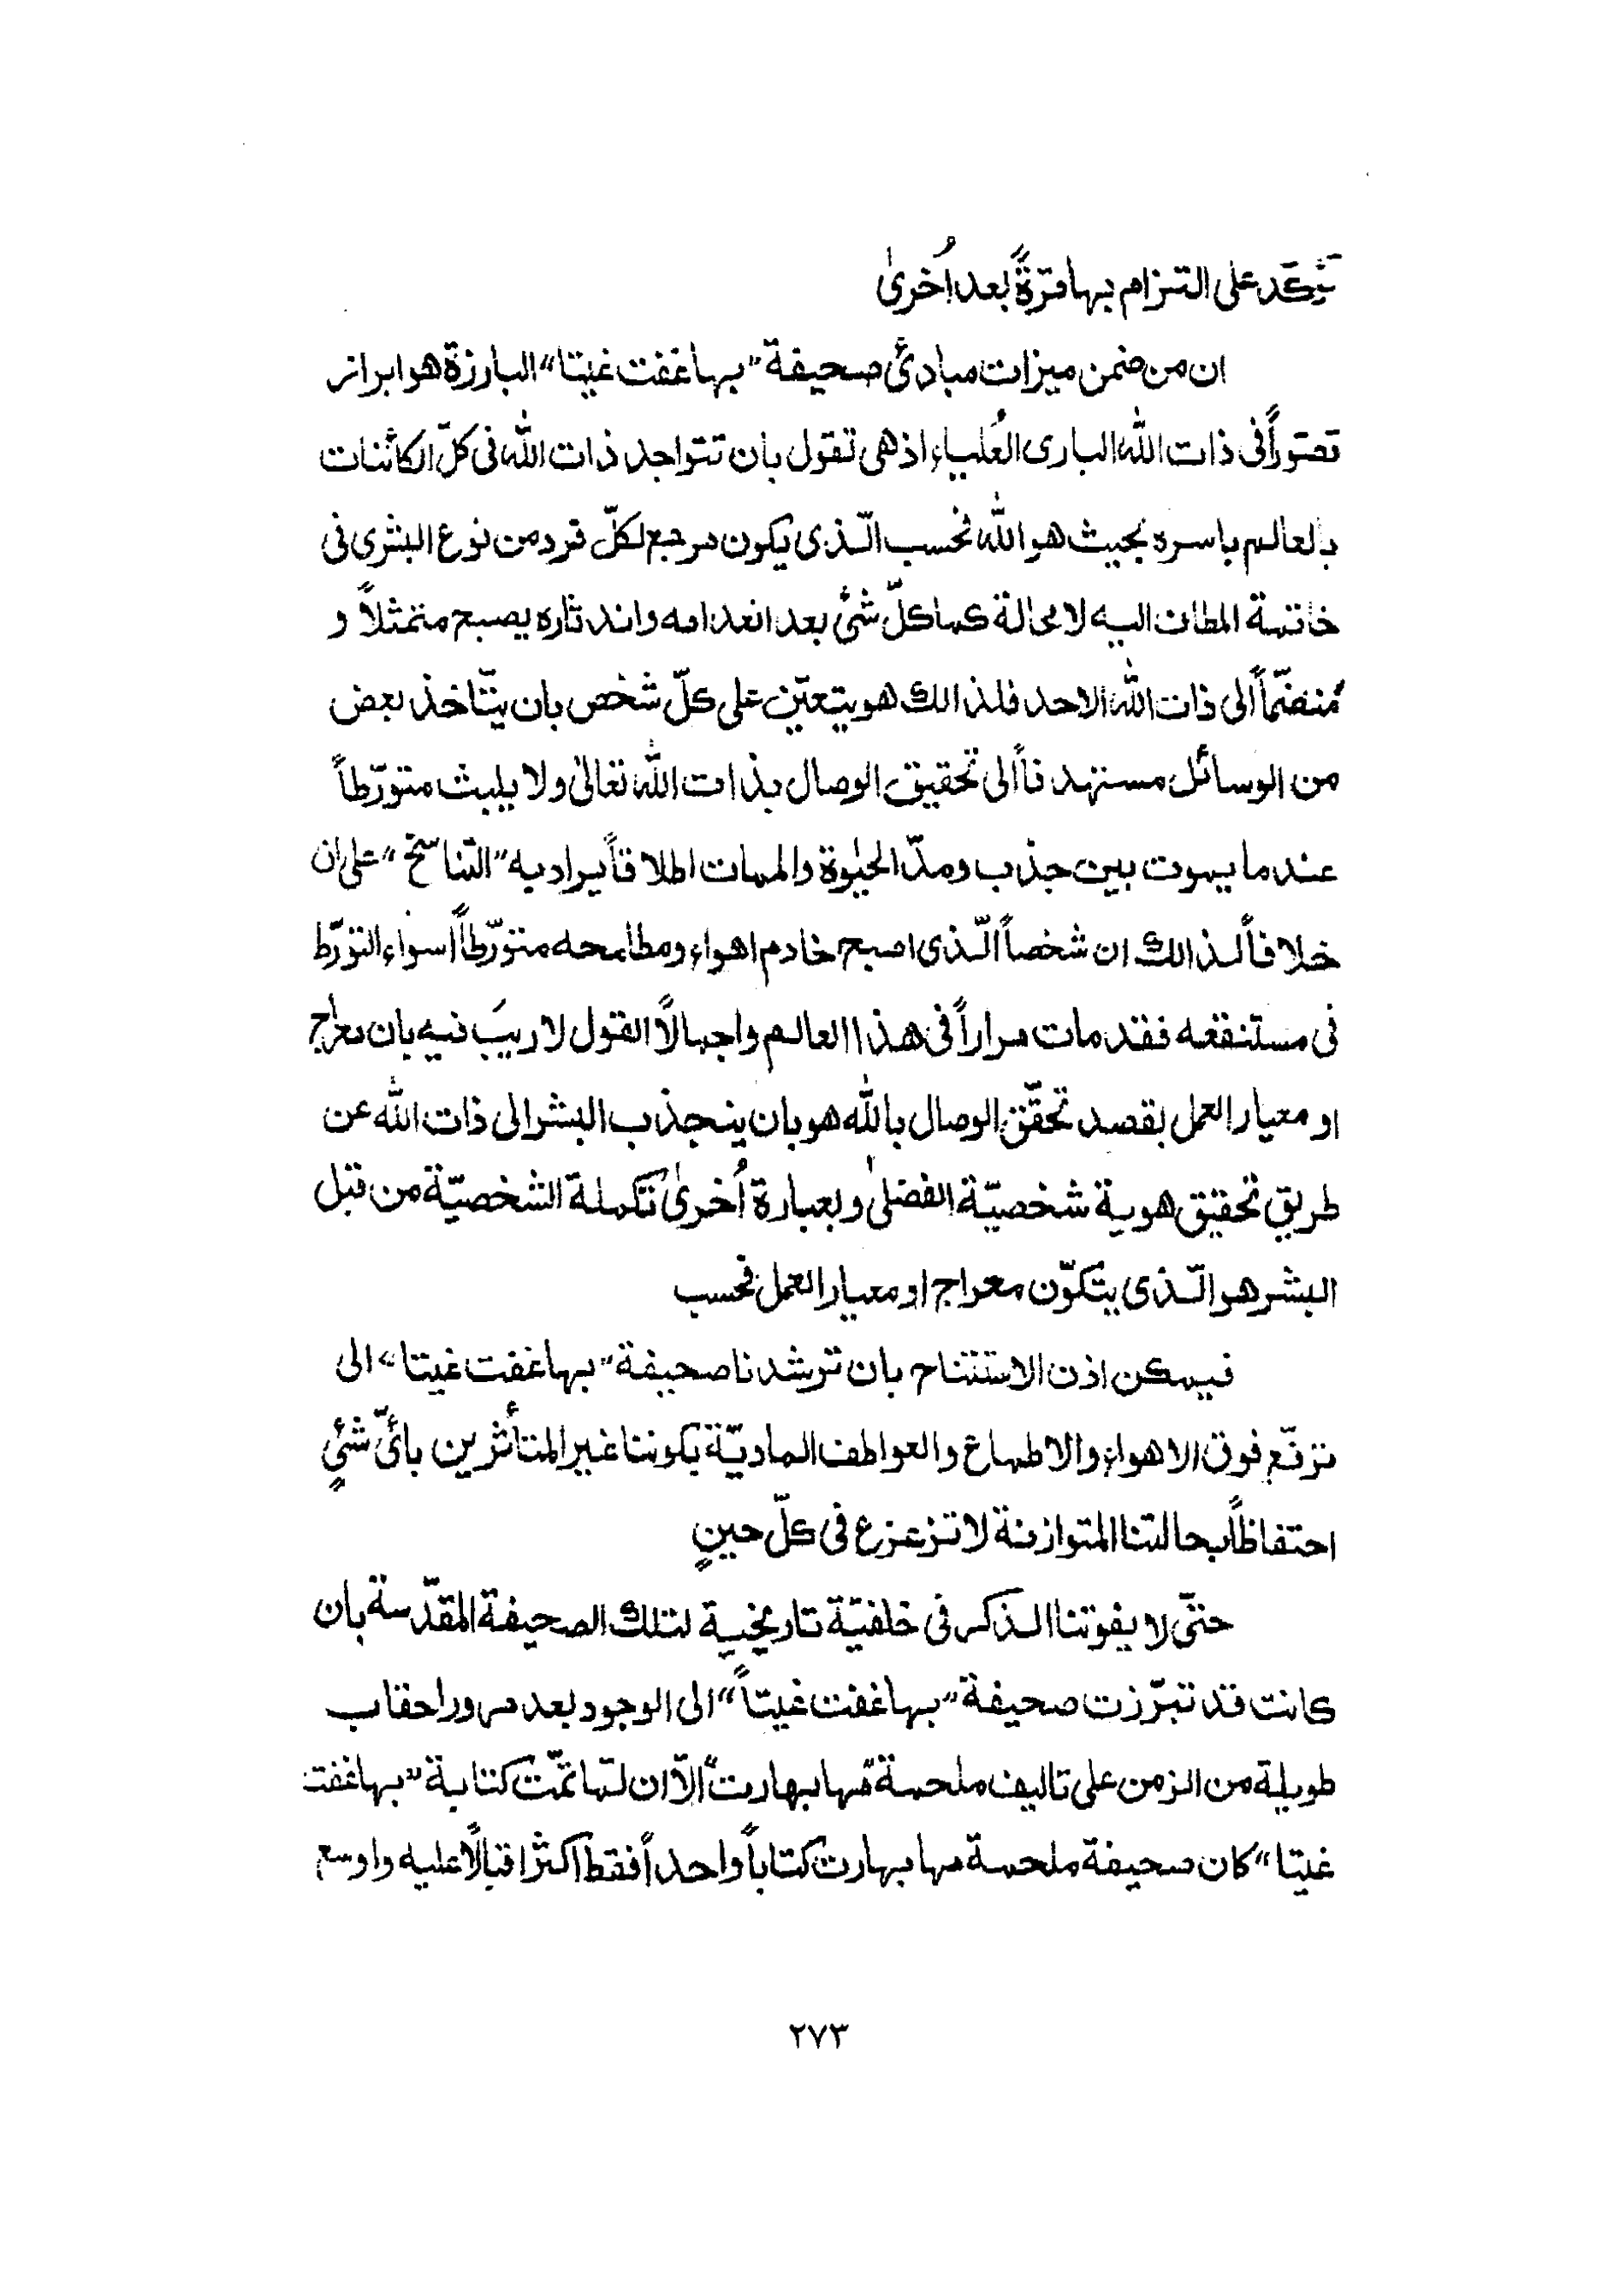 يؤكّد على التزام بها مرّةً بعد اُخرىٰ
ان من ضمن ميزات مبادئ صحيفة "بهاغفت غيتا" البارزة هو ابراز
تصوّراً فى ذات الله البارى العُلياء اذ هى تقول بان تتواجد ذات الله فى كلّ الكائنات
بالعالم باسره بحيث هو الله فحسب الّذى يكون مرجع لكلّ فرد من نوع البشرى فى
خاتمة المطاف اليه لا محالة كما كلّ شئ بعد انعدامه واندثاره يصبح متمثلاً و
مُنضمّاً الى ذات الله الاحد فلذالك هو يتعيّن على كلّ شخص بان يتّاخذ بعض
من الوسائل مستهدفاً الى تحقيق الوصال بذات الله تعالىٰ ولا يلبث متورّطاً
عندما يموت بين جذب ومدّ الحيٰوة والممات اطلاقاً يراد به "التناسخ" على ان
خلافاً لذالك ان شخصاً الّذى اصبح خادم اهواء ومطامحه متورّطاً اسواء التورّط
فى مستنقعه فقد مات مراراً فى هذا العالم واجمالاً القول لا ريبَ فيه بان معراج
او معيار العمل بقصد تحقّق الوصال بالله هو بان ينجذب البشر الى ذات الله عن
طريق تحقيق هوية شخصيّة الفضلىٰ وبعبارة اُخرىٰ تكملة الشخصيّة من قبل
البشر هو الّذى يتكوّن معراج او معيار العمل فحسب
فيمكن اذن الاستنتاج بان ترشدنا صحيفة "بهاغفت غيتا" الى
ترفّع فوق الاهواء والاطماع والعواطف الماديّة بكوننا غير المتأثرين بأىّ شئٍ
احتفاظاً بحالتنا المتوازنة لا تزعزع فى كلّ حينٍ
حتّى لا يفوتنا الذكر فى خلفيّة تاريخية لتلك الصحيفة المقدّسة بان
كانت قد تبرّزت صحيفة "بهاغفت غيتاً" الى الوجود بعد مرور احقاب
طويلة من الزمن على تاليف ملحمة "مها بهارت" الّا ان لمّا تمّت كتابة "بهاغفت
غيتا" كان صحيفة ملحمة مها بهارت كتاباً واحداً فقط اكثر اقبالاً عليه واوسع
٢٧٣